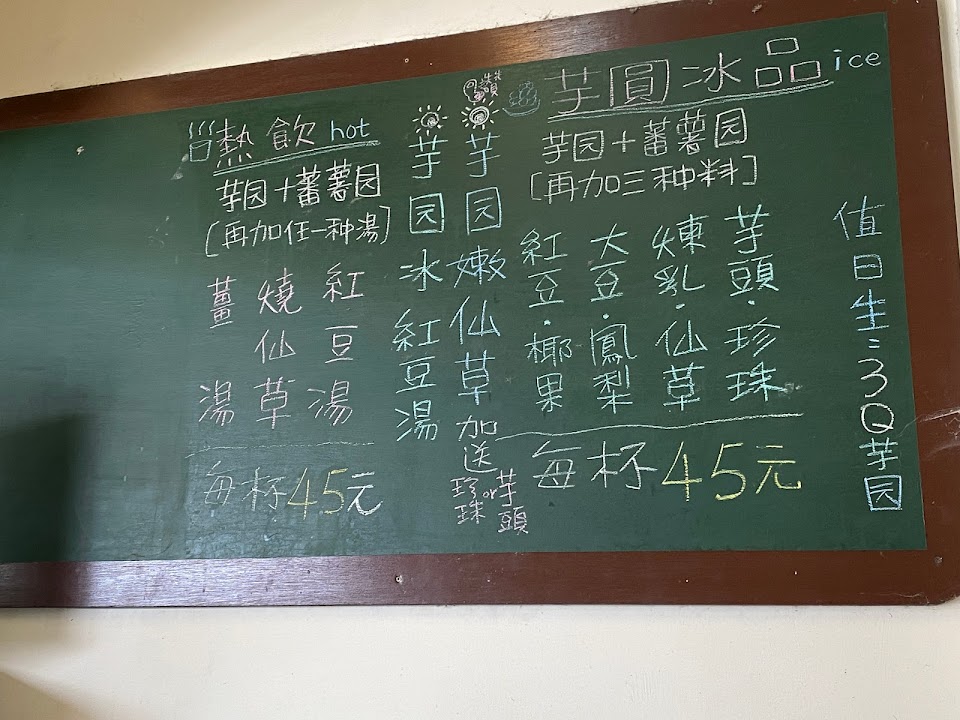 芋圓冰品ice
芋园+蕃薯园
[再加三种料]
芋頭·珍珠
煉乳·仙草
大豆·鳳梨
紅豆·椰果
每杯45元
芋园嫩仙草加送珍珠or芋頭
芋园冰紅豆湯
熱飲hot
芋园+蕃薯园
[再加任一种湯]
紅豆湯
燒仙草
薑湯
每杯45元
值日生:3Q芋园